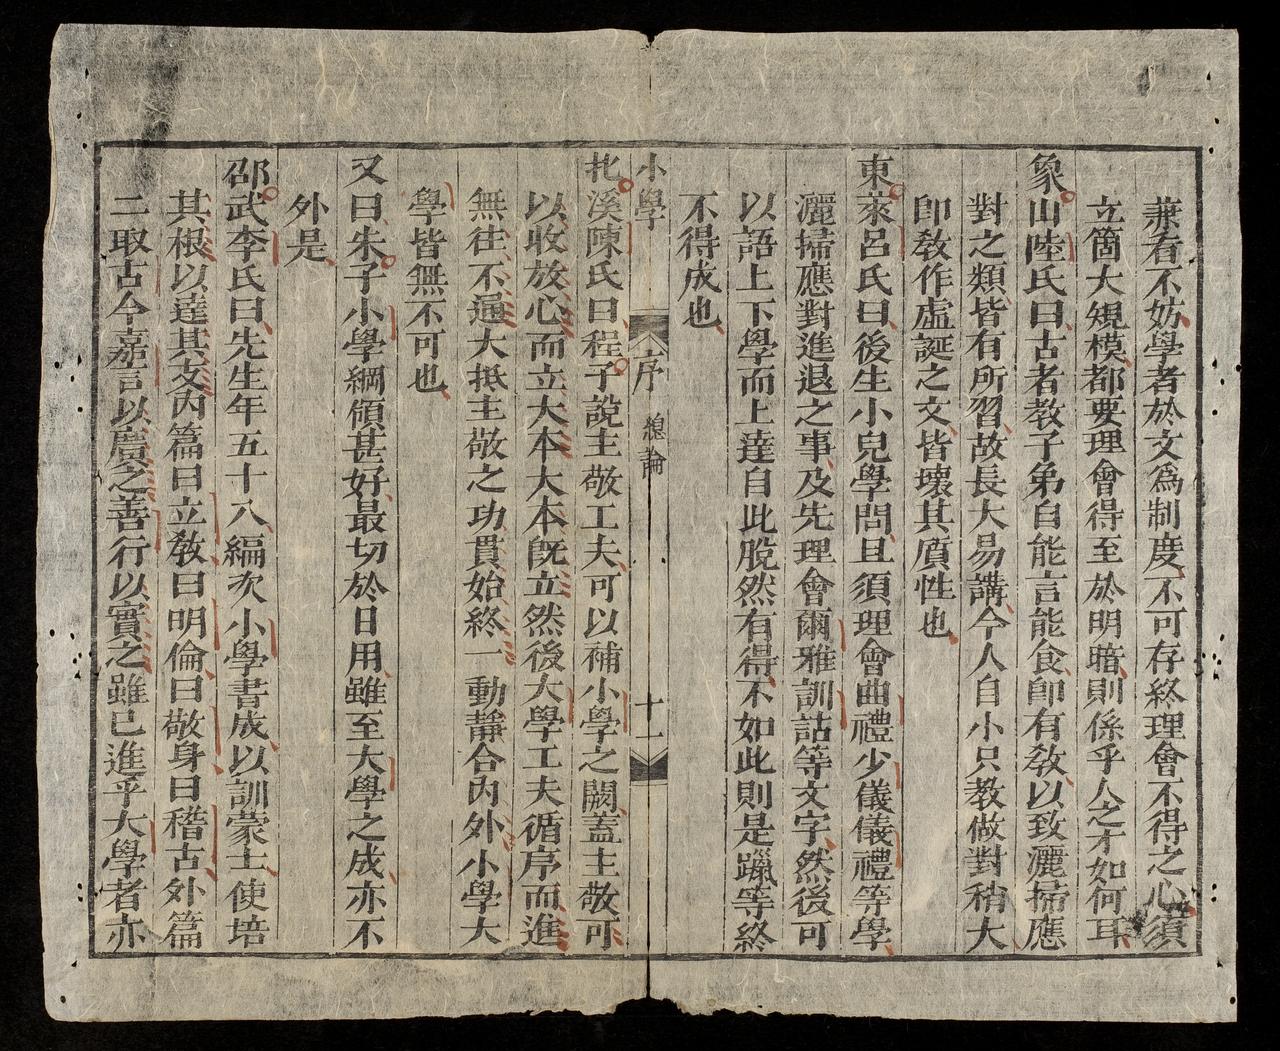 兼看不妨學者於文爲制度不可存終理會不得之心須
立箇大規模都要理會得至於明暗則係乎人之才如何耳
象山陸氏曰古者教子弟自能言能食卽有敎以致灑掃應
對之類皆有所習故長大易講今人自小只教做對稍大
卽敎作虛誕之文皆壞其質性也
東萊呂氏曰後生小兒學問且須理會曲禮少儀儀禮等學
灑掃應對進退之事及先理會爾雅訓詁等文字然後可
以語上下學而上達自此脫然有得不如此則是躐等終
不得成也
小學 序 總論 十一
北溪陳氏曰程子說主敬工夫可以補小學之闕蓋主敬可
以收放心而立大本大本旣立然後大學工夫循序而進
無往不通大抵主敬之功貫始終一動靜合內外小學大
學皆無不可也
又曰朱子小學綱領甚好最切於日用雖至大學之成亦不
外是
邵武李氏曰先生年五十八編次小學書成以訓蒙士使培
其根以達其支內篇曰立敎曰明倫曰敬身曰稽古外篇
二取古今嘉言以廣之善行以實之雖已進乎大學者亦